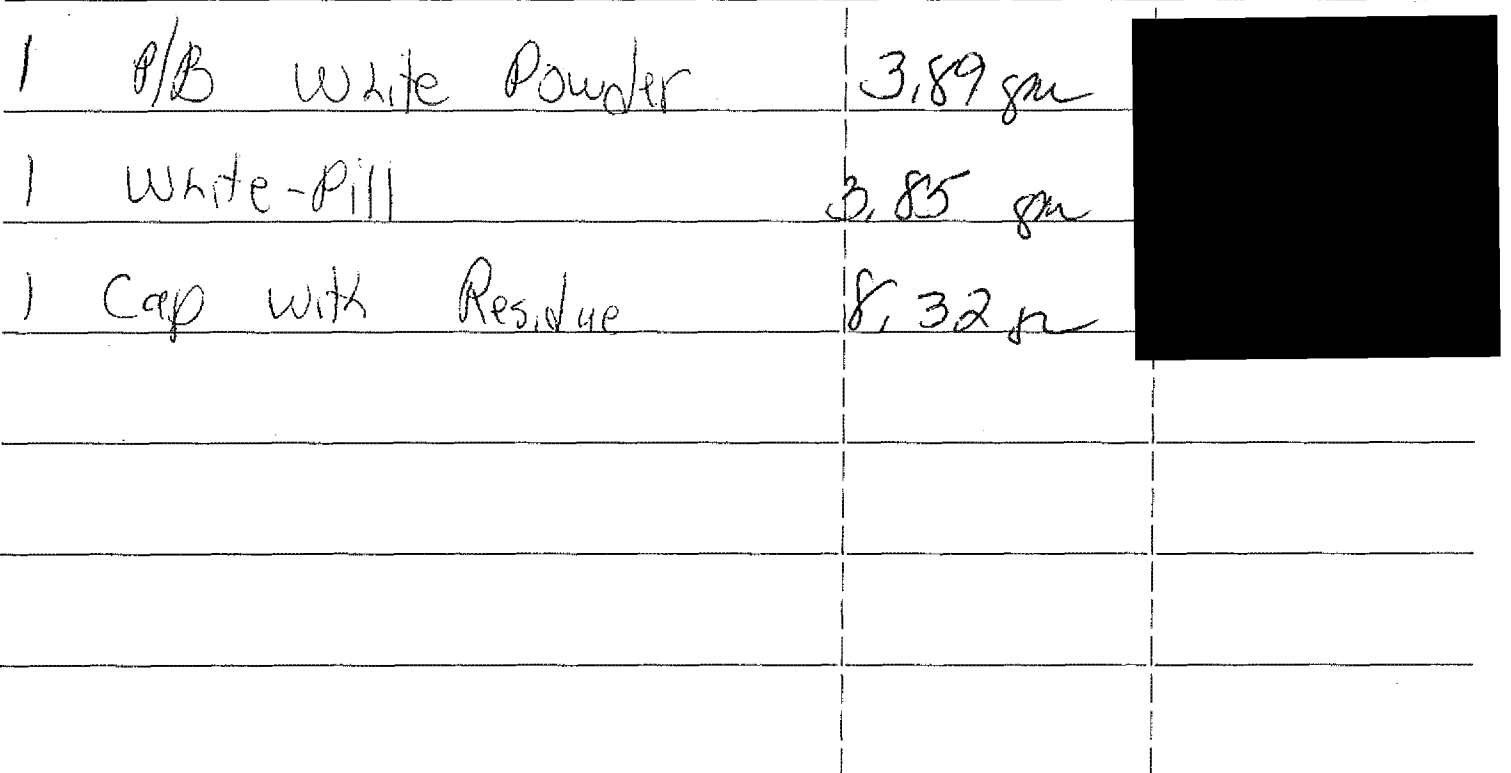 1 P/B White Powder 3.89 gm
1 White-Pill 3.85 gm
1 Cap with Residue 8.32 gm